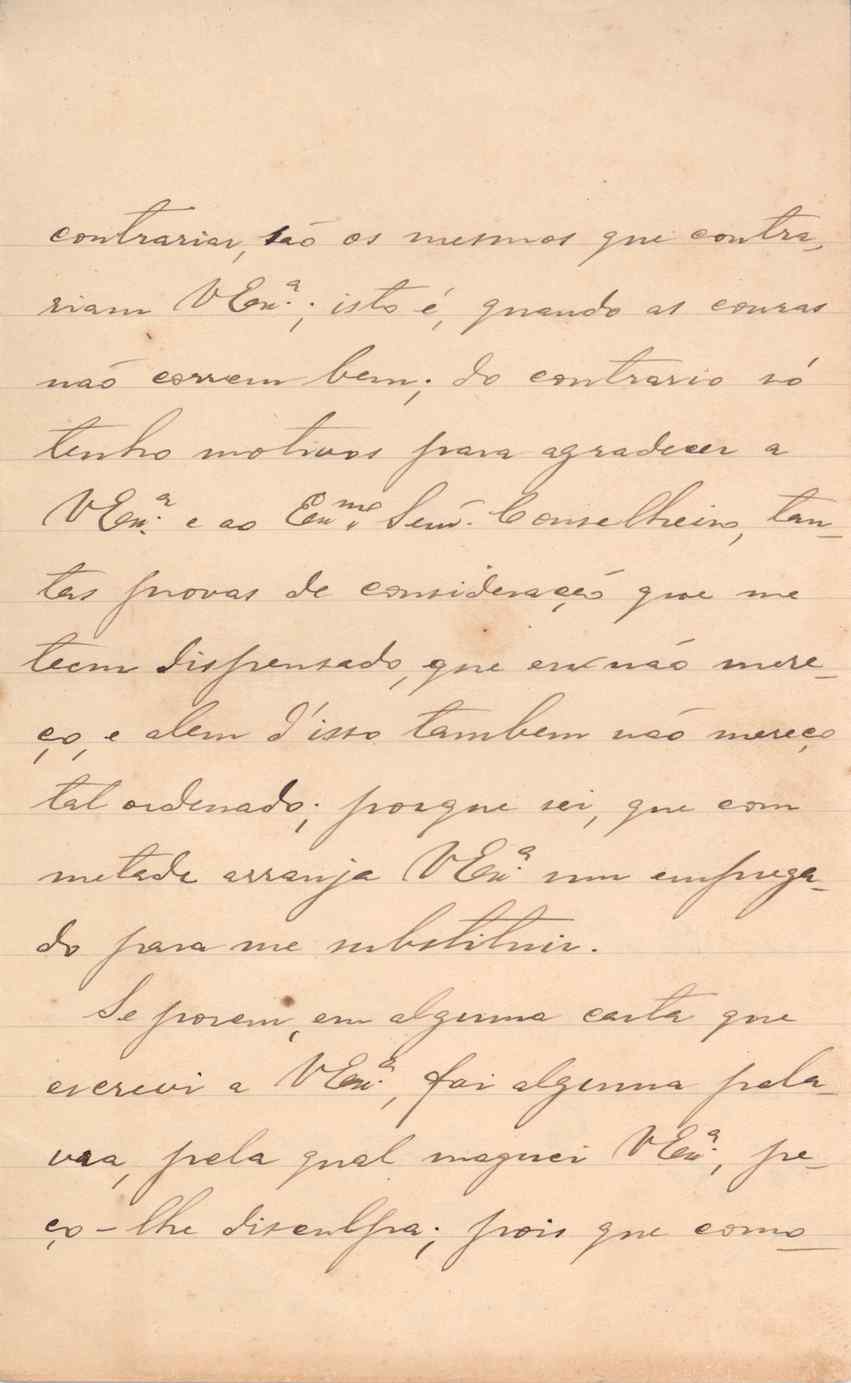 contrariar, são os mesmos que contra-
riam VExª.; isto é, quando as cousas
não correm bem; do contrario só
tenho motivos para agradecer a
VExª. e ao Exmº. Senr. Conselheiro, tan-
tas provas de consideração que me
teem dispensado, que eu não mere-
ço, e alem d'isso tambem não mereço
tal ordenado; porque sei, que com
metade arranja VExª. um emprega-
do para me substituir.
Se porem, em alguma carta que
escrevi a VExª., foi alguma pala-
vra, pela qual maguei VExª., pe-
ço-lhe disculpa; pois que como